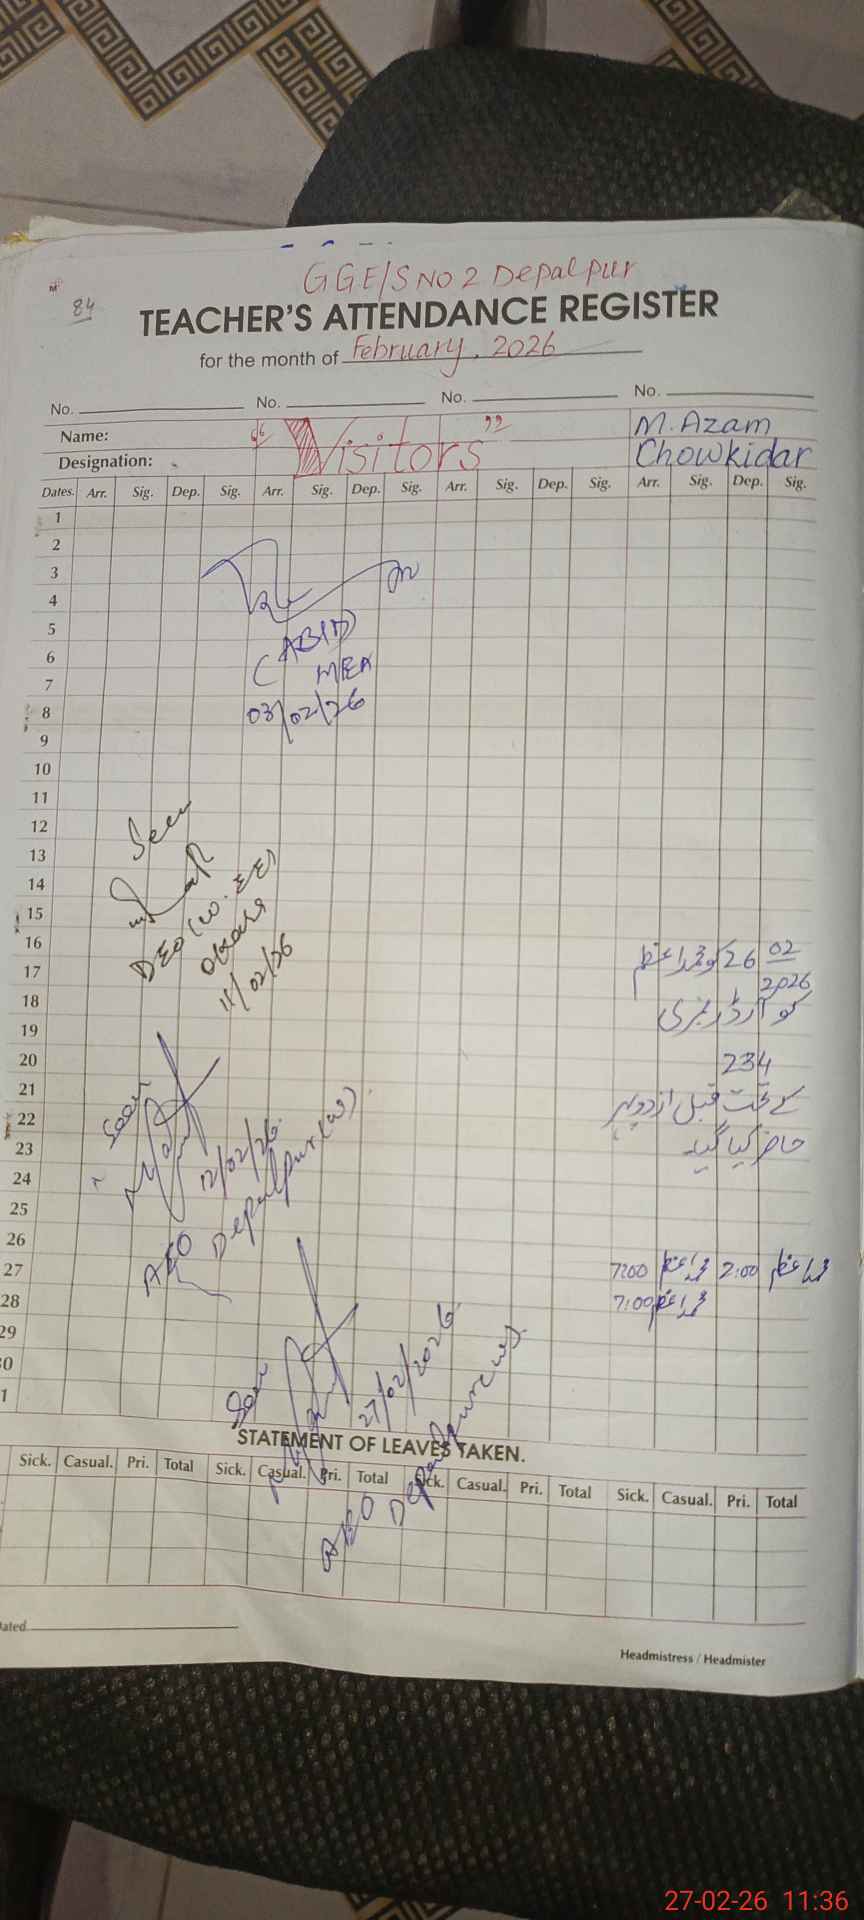 GGE/S NO 2 Depalpur
84
TEACHER'S ATTENDANCE REGISTER
for the month of February, 2026
No. No. No. No.
Name: M. Azam
"Visitors"
Designation: Chowkidar
Dates. Arr. Sig. Dep. Sig. Arr. Sig. Dep. Sig. Arr. Sig. Dep. Sig. Arr. Sig. Dep. Sig.
1
2
3
4
5
6
7
8
9
10
11
12
13
14
15
16
17
18
19
20
21
22
23
24
25
26
27
28
29
30
1
(ABID)
MEA
03/02/26
Seen
DEO (W.EE)
Okara
11/02/26
Seen
12/02/26
AEO Depalpur (W)
Seen
27/02/2026
AEO Depalpur
26 02 2026 کو محمد اعظم
کو آرڈر نمبری
234
کے تحت قبل از دوپہر
حاضر کیا گیا۔
7:00 محمد اعظم 2:00 محمد اعظم
7:00 محمد اعظم
STATEMENT OF LEAVES TAKEN.
Sick. Casual. Pri. Total Sick. Casual. Pri. Total Sick. Casual. Pri. Total Sick. Casual. Pri. Total
Headmistress / Headmister
27-02-26 11:36